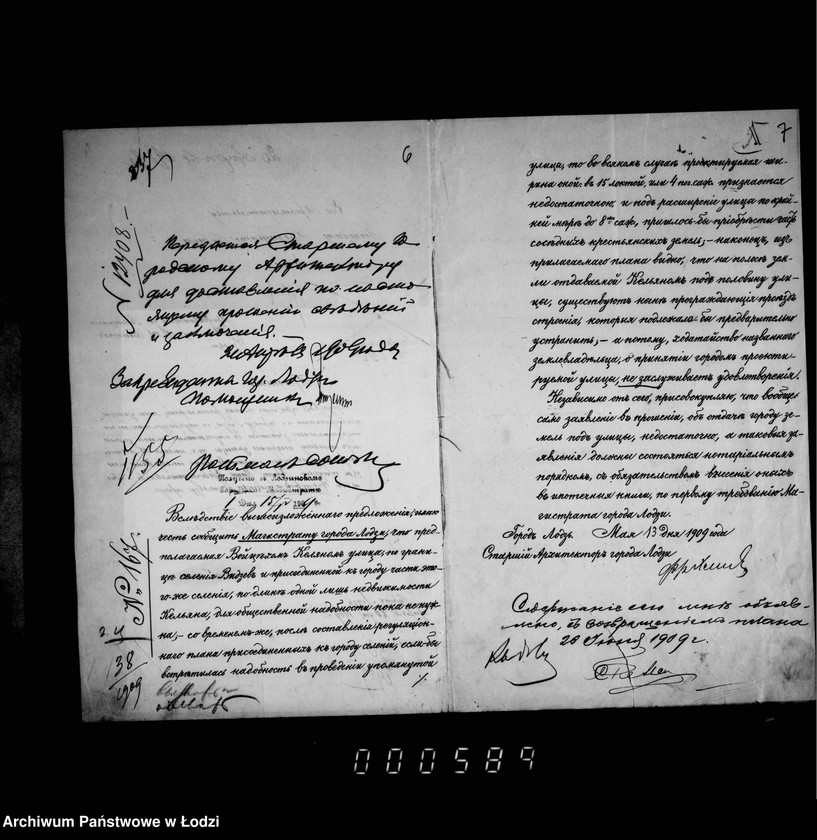 6
№ 12408.—
Передается Старшему Го-
родскому Архитектору
для доставления по насто-
ящему прошению сведений
и заключения.
За Президента гор. Лодзи
1155
Получено в Лодзинском
Городском Магистрате
Дня 15/V 1909 г.
Вследствие вышеизложеннаго предложения, имею
честь сообщить Магистрату города Лодзи, что пред-
полагаемая Войцехом Кельяном улица, по грани-
це селения Видзев и присоединенной к городу части это-
го-же селения, по длине одной лишь недвижимости
Кельяна, для общественной надобности пока не нуж-
на,— со временем же, после составления регуляцион-
наго плана присоединенных к городу селений, если-бы
встретилась надобность в проведении упомянутой
№ 167.
138
1909
7
улицы, то во всяком случае проектируемая ши-
рина оной в 15 локтей, или 4 пог. саж. признается
недостаточною и под расширение улицы по край-
ней мере до 8ми саж, пришлось-бы приобрести часть
соседних крестьянских земель;— наконец, из
прилагаемого плана видно, что на полосе зем-
ли отдаваемой Кельяном под половину ули-
цы, существуют ныне преграждающия проезд
строения, которыя подлежало-бы предварительно
устранить;— а потому, ходатайство названнаго
землевладельца, о принятии городом проекти-
руемой улицы, не заслуживает удовлетворения.
Независимо от сего, присовокупляю, что вообще
само заявление в прошении, об отдаче городу зе-
мель под улицы, недостаточно, а таковыя за-
явления должны состояться нотариальным
порядком, с обязательством внесения оных
в ипотечныя книги, по первому требованию Ма-
гистрата города Лодзи.
Город Лодзь. Мая 13 дня 1909 года
Старший Архитектор города Лодзи
Содержание сего мне объяв-
лено, с возвращением плана
26 Июня 1909 г.
000589
Archiwum Państwowe w Łodzi